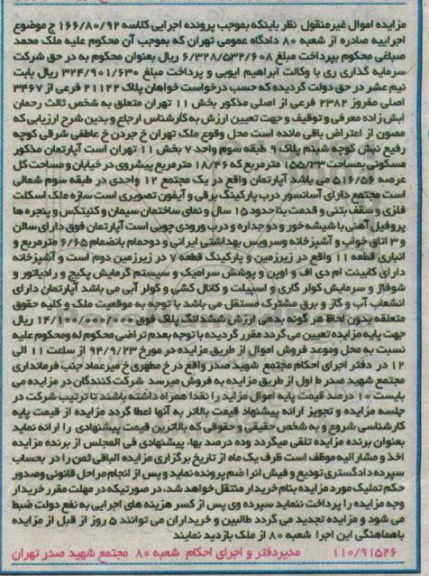 مزایده اموال غیرمنقول نظر باینکه بموجب پرونده اجرایی کلاسه ۱۶۶/۸۰/۹۲ ج موضوع
اجراییه صادره از شعبه ۸۰ دادگاه عمومی تهران که بموجب آن محکوم علیه ملک محمد
صباغی محکوم بپرداخت مبلغ ۶/۳۲۸/۵۳۲/۶۰۸ ریال بعنوان محکوم به در حق شرکت
سرمایه گذاری ری با وکالت ابراهیم ایوبی و پرداخت مبلغ ۳۲۴/۹۰۱/۶۳۰ ریال بابت
نیم عشر در حق دولت گردیده که حسب درخواست خواهان پلاک ۲۱۱۲۲ فرعی از ۳۴۶۷
اصلی مفروز ۲۳۸۲ فرعی از اصلی مذکور بخش ۱۱ تهران متعلق به شخص ثالث رحمان
ابش زاده معرفی و توقیف و جهت تعیین ارزش به کارشناس ارجاع و بدین شرح ارزیابی که
مصون از اعتراض باقی مانده است محل وقوع ملک تهران خ جردن خ عاطفی شرقی کوچه
رفیع نبش کوچه شبنم پلاک ۹ طبقه سوم واحد ۷ بخش ۱۱ تهران است آپارتمان مذکور
مسکونی بمساحت ۱۵۵/۲۳ مترمربع که ۱۸/۴۶ مترمربع پیشروی در خیابان و مساحت کل
عرصه ۵۱۶/۵۶ می باشد آپارتمان واقع در یک مجتمع ۱۲ واحدی در طبقه سوم شمالی
است مجتمع دارای آسانسور درب پارکینگ برقی و آیفون تصویری است سازه ملک اسکلت
فلزی و سقف بتنی و قدمت بنا حدود ۱۵ سال و نمای ساختمان سیمان و کنیتکس و پنجره ها
پروفیل آهنی با شیشه خور و دو جداره و درب ورودی چوبی است آپارتمان فوق دارای سالن
و ۳ اتاق خواب و آشپزخانه و سرویس بهداشتی ایرانی و دو حمام بانضمام ۶/۶۵ مترمربع و
انباری قطعه ۱۱ واقع در زیرزمین و پارکینگ قطعه ۷ در زیرزمین دوم است و آشپزخانه
دارای کابینت ام دی اف و اوپن و پوشش سرامیک و سیستم گرمایش پکیج و رادیاتور و
شوفاژ و سرمایش کولر گازی و اسپیلت و کانال کشی و کولر آبی می باشد آپارتمان دارای
انشعاب آب و گاز و برق مشترک مستقل می باشد با توجه به موقعیت ملک و کلیه حقوق
متعلقه بدون لحاظ هر گونه بدهی ارزش ششدانگ پلاک فوق ۱۴/۲۰۰/۰۰۰/۰۰۰ ریال
جهت پایه مزایده تعیین می گردد مقرر گردیده با توجه بعدم تراضی محکوم له و محکوم علیه
نسبت به محل و موعد فروش اموال از طریق مزایده در مورخ ۹۴/۹/۲۳ از ساعت ۱۱ الی
۱۲ در دفتر اجرای احکام مجتمع شهید صدر واقع در خ مطهری خ میرعماد جنب فرمانداری
مجتمع شهید صدر ط اول از طریق مزایده به فروش میرسد شرکت کنندگان در مزایده می
بایست ۱۰ درصد قیمت پایه اموال مزاید را نقدا همراه داشته باشند تا ترتیب شرکت در
جلسه مزایده و تجویز ارائه پیشنهاد قیمت بالاتر به آنها اعطا گردد مزایده از قیمت پایه
کارشناسی شروع و به شخص حقیقی و حقوقی که بالاترین قیمت پیشنهادی را ارائه نماید
بعنوان برنده مزایده تلقی میگردد وده درصد بها، پیشنهادی فی المجلس از برنده مزایده
اخذ و مشارالیه موظف است ظرف یک ماه از تاریخ برگزاری مزایده الباقی ثمن را در بحساب
سپرده دادگستری تودیع و فیش انرا ضم پرونده نماید و پس از انجام مراحل قانونی و صدور
حکم تملیک مورد مزایده بنام خریدار منتقل خواهد شد، در صورتیکه در مهلت مقرر خریدار
وجه مزایده را پرداخت ننماید سپرده وی پس از کسر هزینه های اجرایی به نفع دولت ضبط
می شود و مزایده تجدید می گردد طالبین و خریداران می توانند ۵ روز از قبل از مزایده
باهماهنگی این اجرا شعبه ۸۰ از ملک بازدید نمایند
۱۱۰/۹۱۵۲۶ مدیردفتر و اجرای احکام شعبه ۸۰ مجتمع شهید صدر تهران